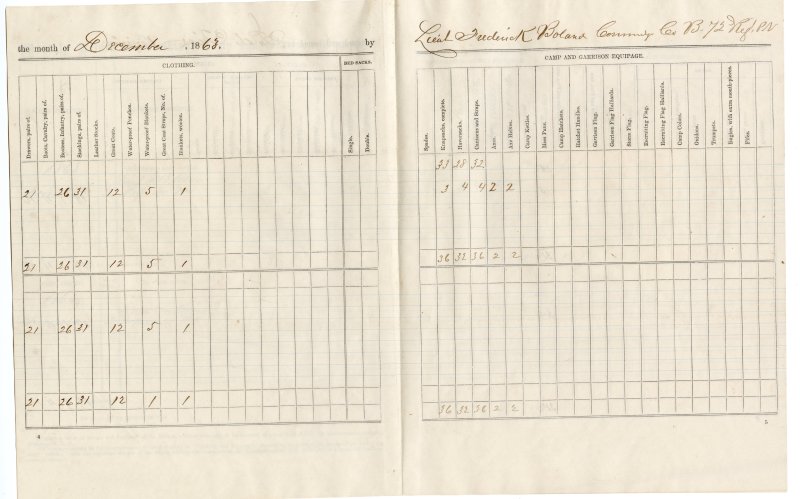 the month of December, 1863. by Lieut Frederick Boland Commdg Co B. 72d Reg. P.V
CLOTHING.
BED SACKS.
Drawers, pairs of.
Boots, Cavalry, pairs of.
Bootees, Infantry, pairs of.
Stockings, pairs of.
Leather Stocks.
Great Coats.
Water-proof Ponchos.
Water-proof Blankets.
Great Coat Straps, No. of.
Blankets, woolen.
Single.
Double.
21 26 31 12 5 1
21 26 31 12 5 1
21 26 31 12 5 1
21 26 31 12 1 1
4
CAMP AND GARRISON EQUIPAGE.
Spades.
Knapsacks, complete.
Haversacks.
Canteens and Straps.
Axes.
Axe Helves.
Camp Kettles.
Mess Pans.
Camp Hatchets.
Hatchet Handles.
Garrison Flag.
Garrison Flag Halliards.
Storm Flag.
Recruiting Flag.
Recruiting Flag Halliards.
Camp Colors.
Guidons.
Trumpets.
Bugles, with extra mouth-pieces.
Fifes.
33 28 32
3 4 4 2 2
36 32 36 2 2
36 32 36 2 2
5